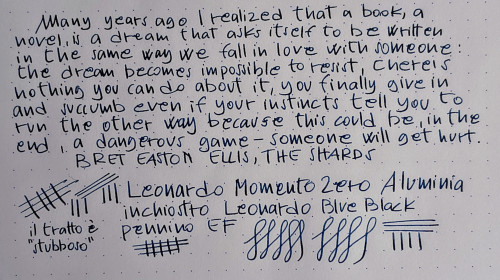 Many years ago I realized that a book, a
novel, is a dream that asks itself to be written
in the same way we fall in love with someone:
the dream becomes impossible to resist, there's
nothing you can do about it, you finally give in
and succumb even if your instincts tell you to
run the other way because this could be, in the
end, a dangerous game – someone will get hurt.
BRET EASTON ELLIS, THE SHARDS
Leonardo Momento Zero Aluminia
inchiostro Leonardo Blue Black
pennino EF
il tratto è
"stubboso"